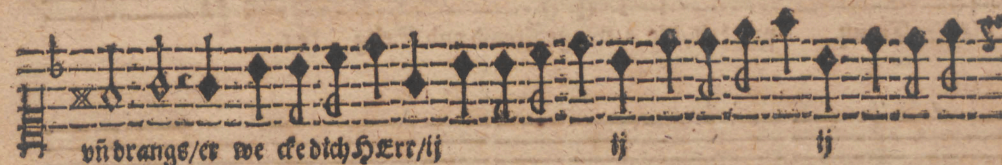 vñ drangs/er we cke dich HErr/ij ij ij